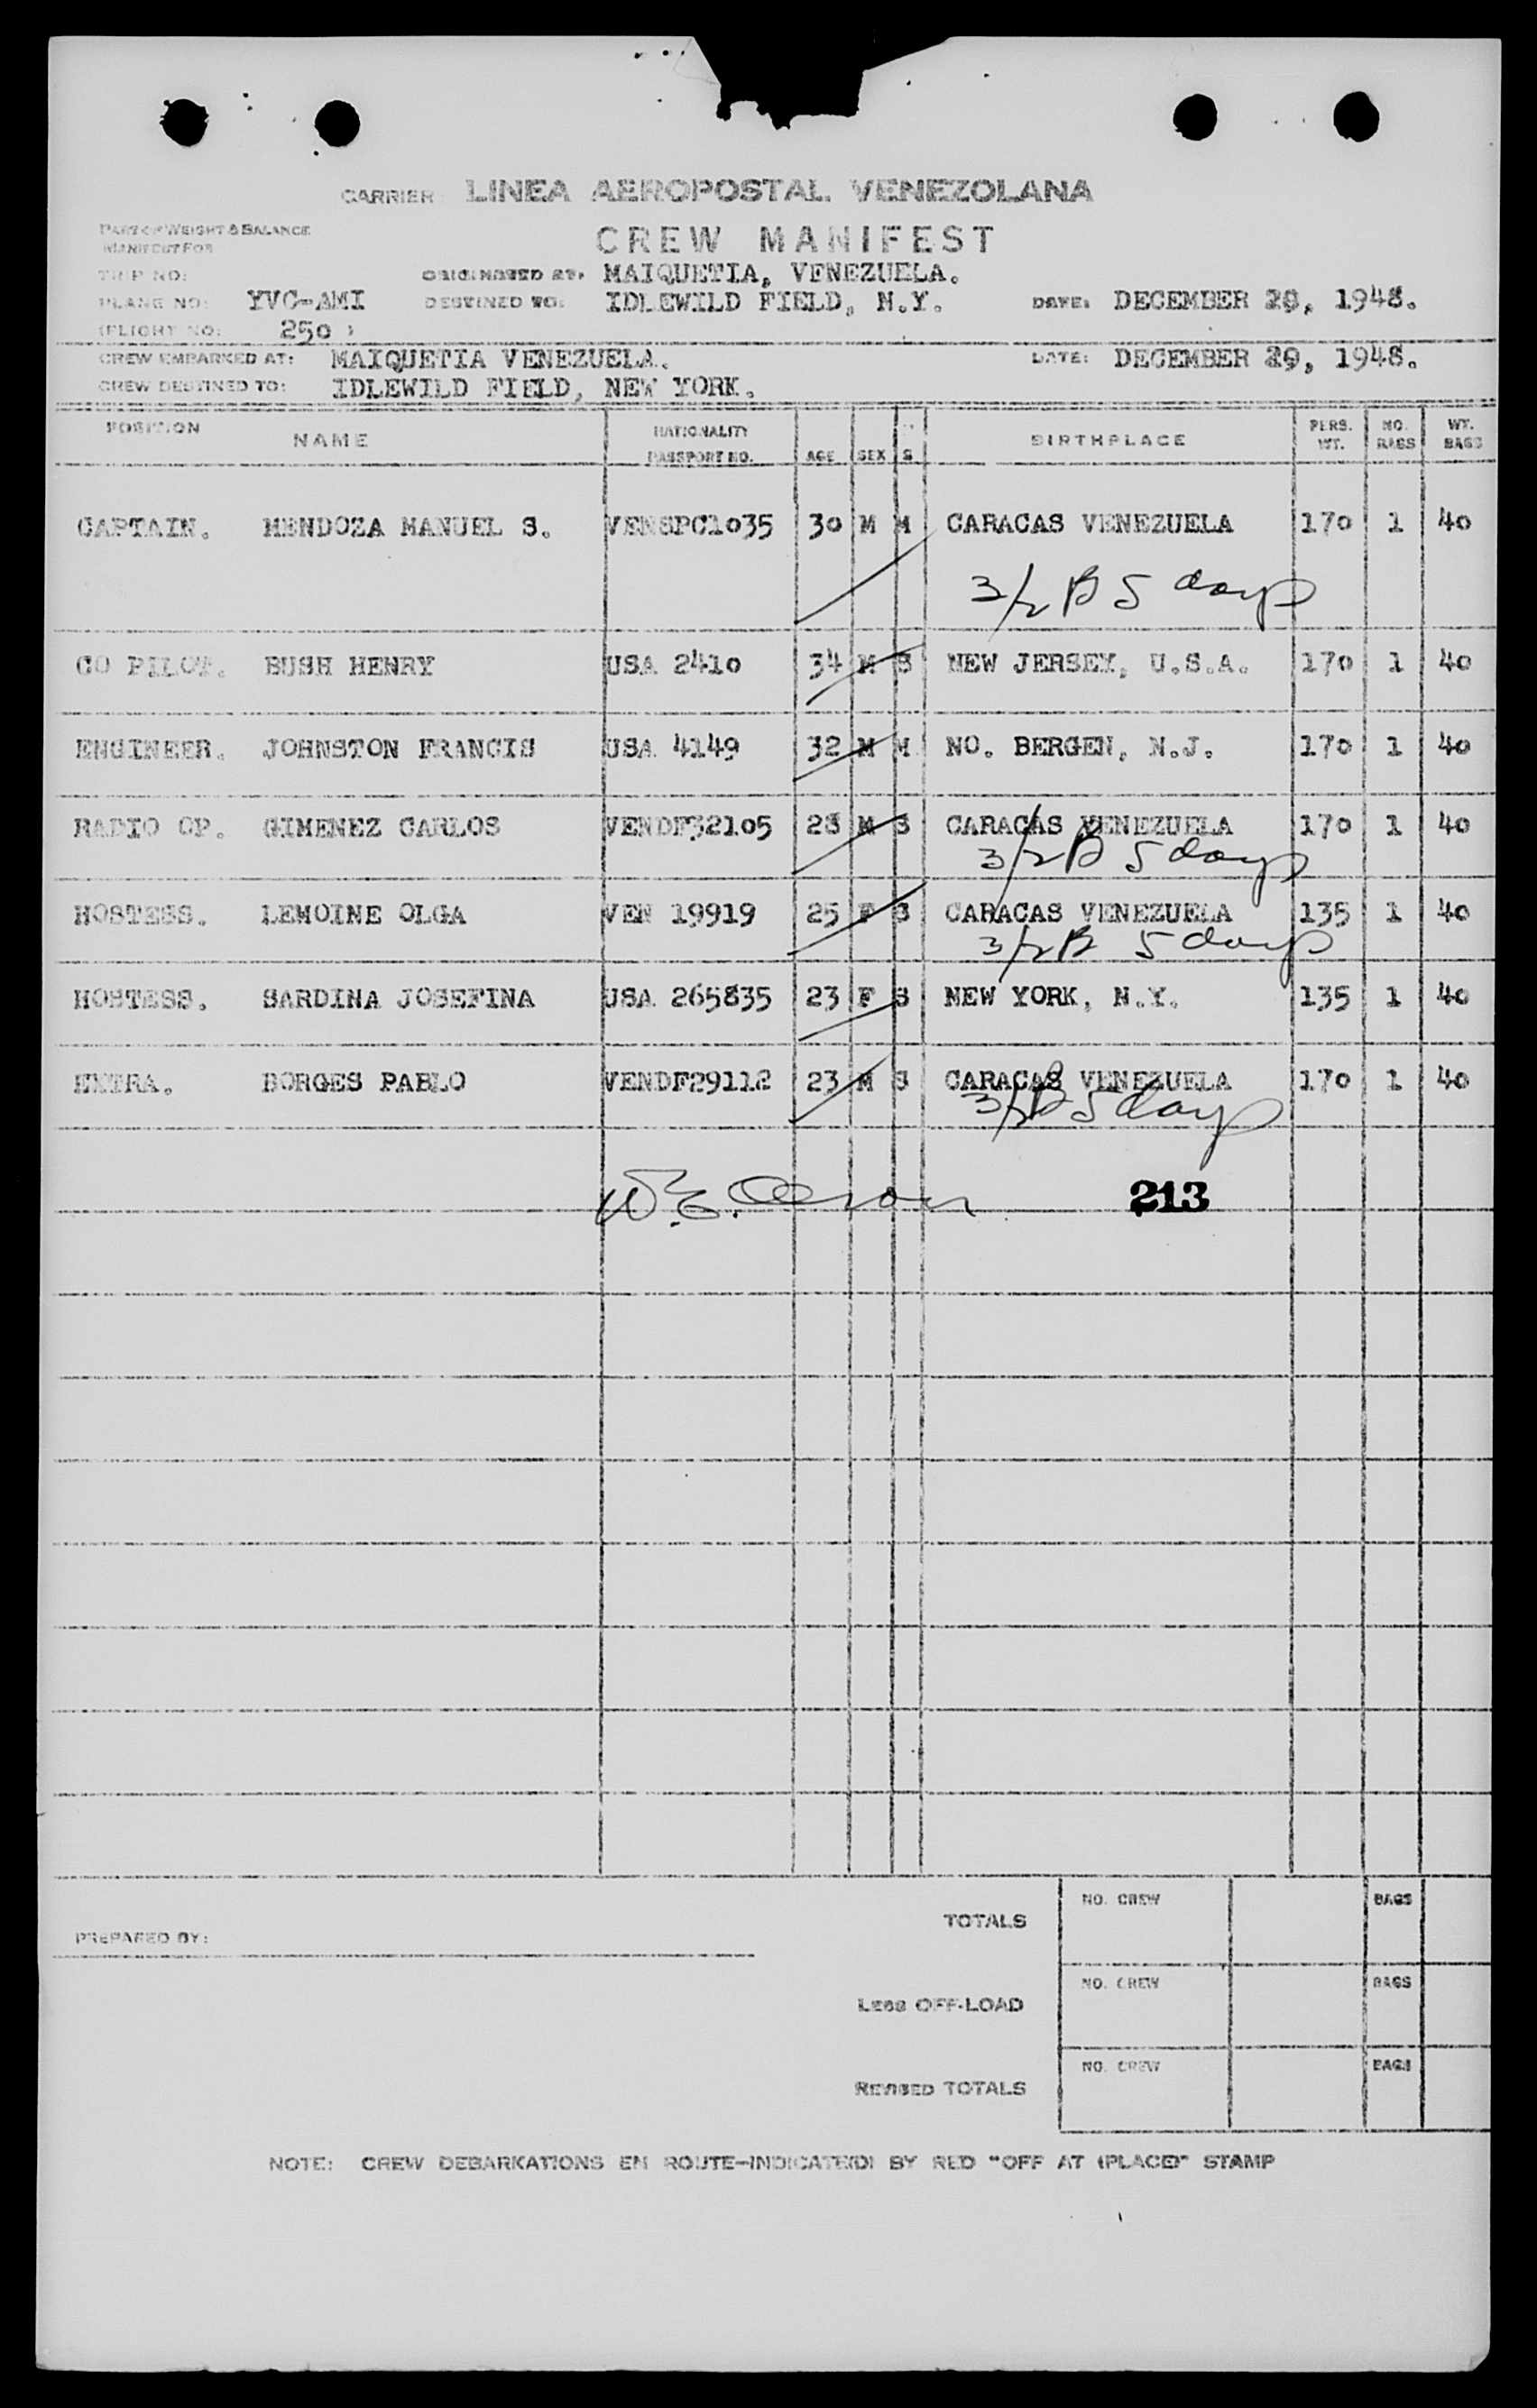 CARRIER LINEA AEROPOSTAL VENEZOLANA
PART OF WEIGHT & BALANCE
MANIFEST FOR
CREW MANIFEST
TRIP NO: ORIGINATED AT: MAIQUETIA, VENEZUELA.
PLANE NO: YVC-AMI DESTINED TO: IDLEWILD FIELD, N.Y. DATE: DECEMBER , 1948.
(FLIGHT NO: 250 )
CREW EMBARKED AT: MAIQUETIA VENEZUELA. DATE: DECEMBER 29, 1948.
CREW DESTINED TO: IDLEWILD FIELD, NEW YORK.
POSITION NAME NATIONALITY PASSPORT NO. AGE SEX S BIRTHPLACE PERS. WT. NO. BAGS WT. BAGS
CAPTAIN. MENDOZA MANUEL S. VENSPC1035 30 M M CARACAS VENEZUELA 170 1 40
3/2 B 5 days
CO PILOT. BUSH HENRY USA 2410 34 M S NEW JERSEY, U.S.A. 170 1 40
ENGINEER. JOHNSTON FRANCIS USA 4149 32 M M NO. BERGEN, N.J. 170 1 40
RADIO OP. GIMENEZ CARLOS VENDF32105 28 M S CARACAS VENEZUELA 170 1 40
3/2 B 5 days
HOSTESS. LEMOINE OLGA VEN 19919 25 F S CARACAS VENEZUELA 135 1 40
3/2 B 5 days
HOSTESS. SARDINA JOSEFINA USA 265835 23 F S NEW YORK, N.Y. 135 1 40
EXTRA. BORGES PABLO VENDF29112 23 M S CARACAS VENEZUELA 170 1 40
3/2 B 5 days
W. E. 213
TOTALS NO. CREW BAGS
PREPARED BY:
LESS OFF-LOAD NO. CREW BAGS
REVISED TOTALS NO. CREW BAGS
NOTE: CREW DEBARKATIONS EN ROUTE-INDICATE(D) BY RED "OFF AT (PLACE)" STAMP